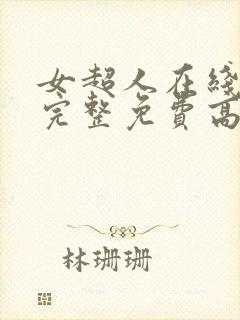 女超人在綫
完整免費高
林珊珊